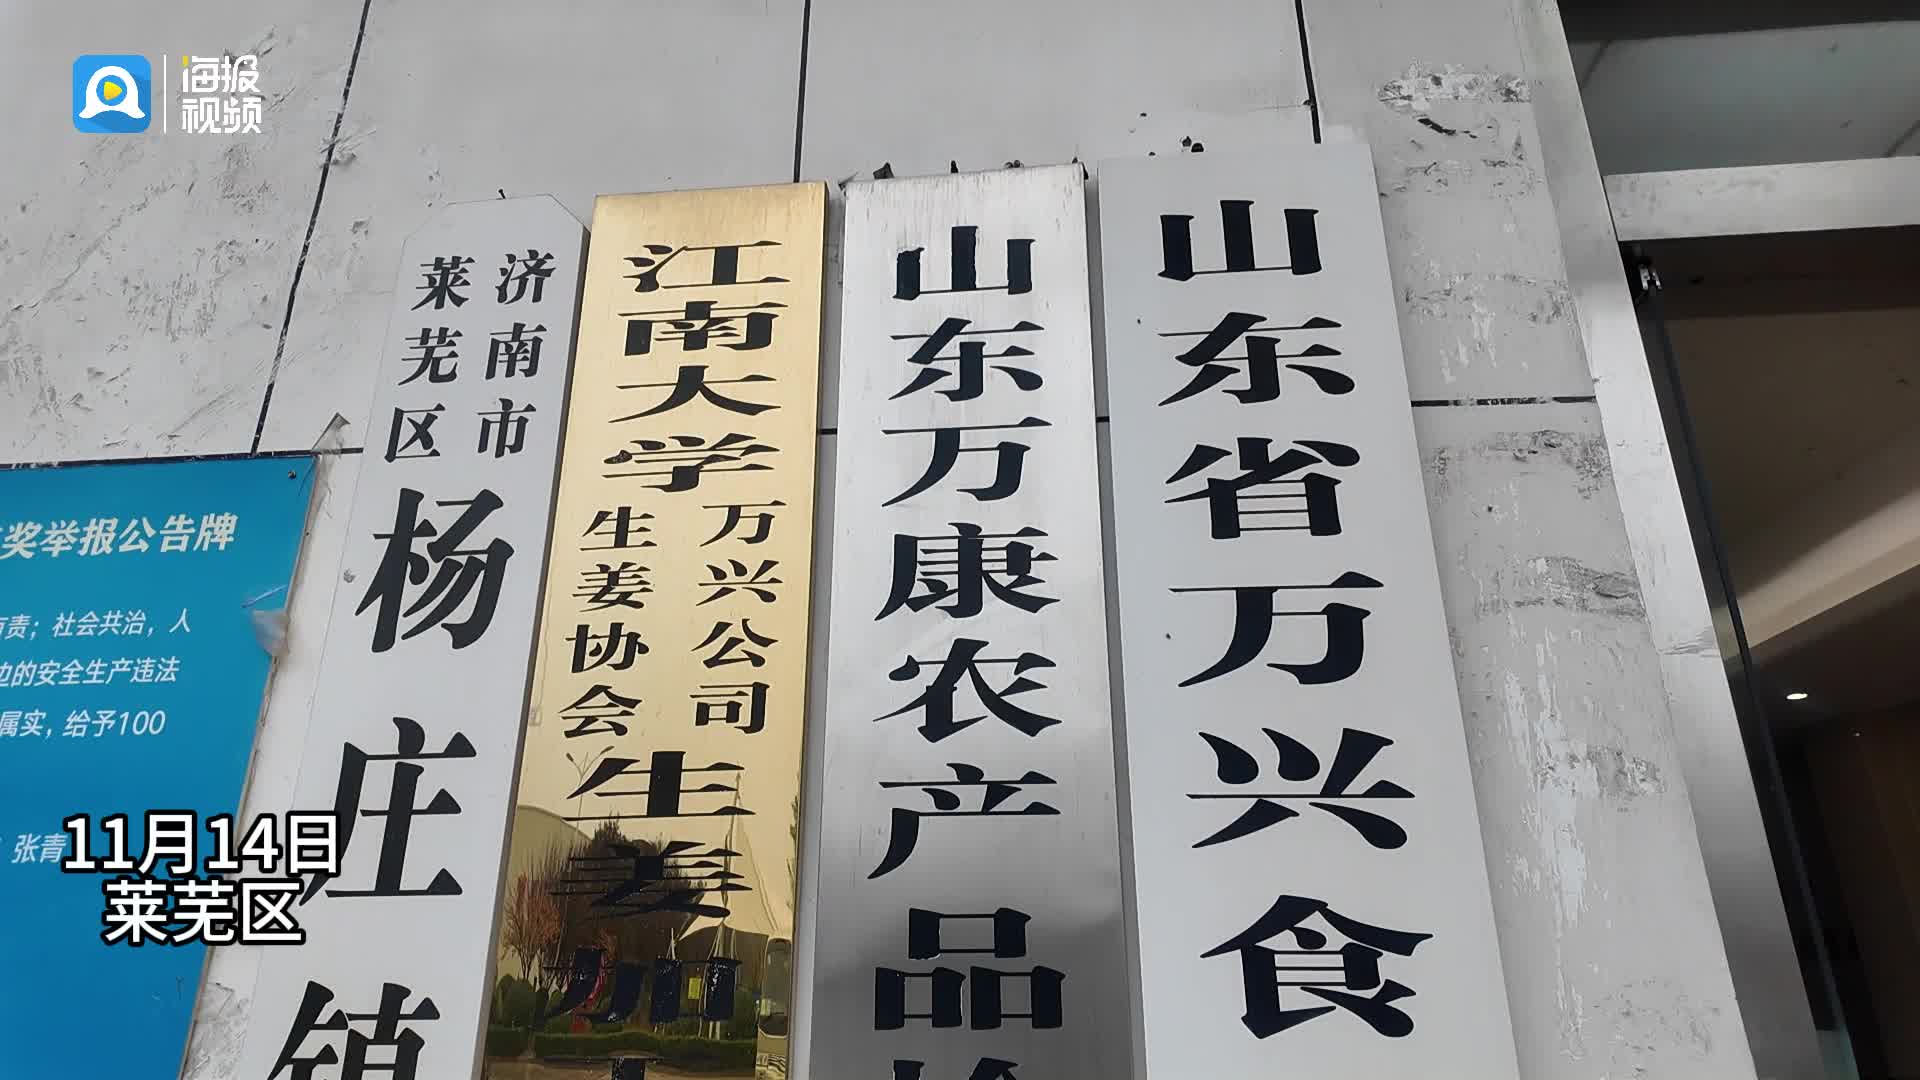 海报
视频
济南市
莱芜区
杨庄镇
江南大学
万兴公司
生姜协会
生姜加工
山东万康农产品检
山东省万兴食
奖举报公告牌
责；社会共治，人
边的安全生产违法
属实，给予100
张青
11月14日
莱芜区